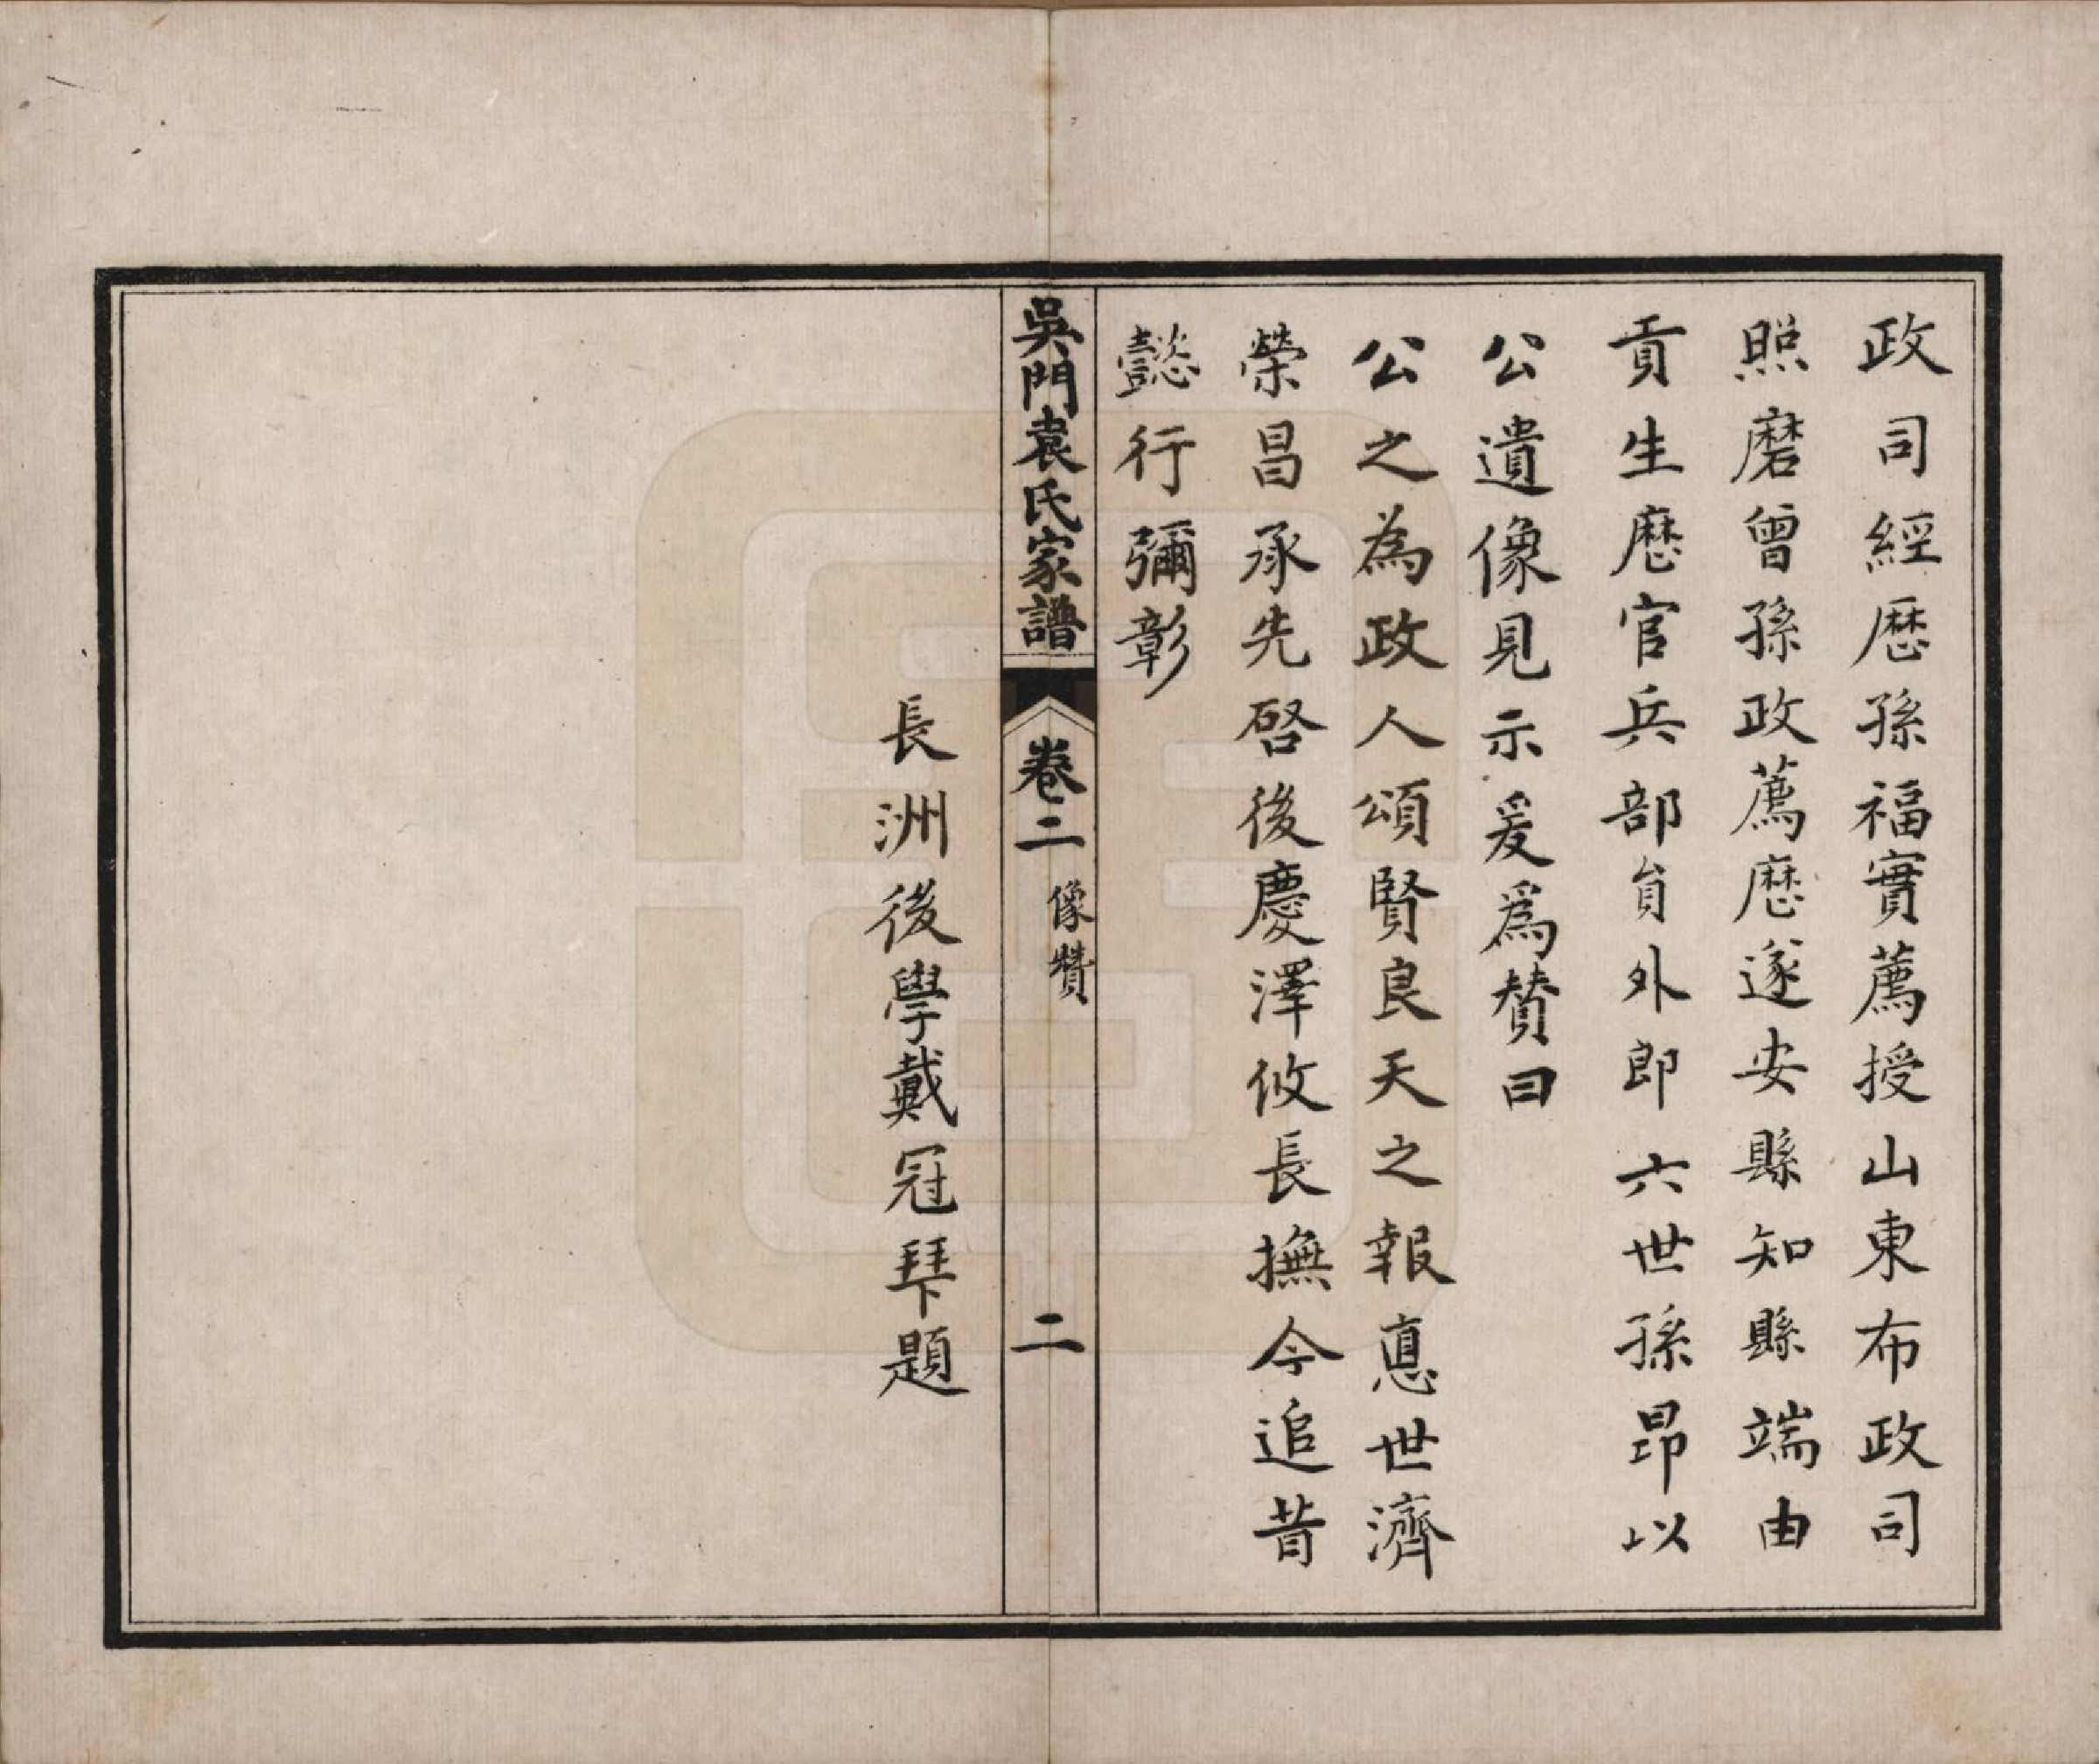 政司經厯孫福實薦授山東布政司
照磨曾孫政薦厯遂安縣知縣端由
貢生厯官兵部員外郎六世孫昂以
公遺像見示爰爲賛曰
公之為政人頌賢良天之報悳世濟
榮昌承先啓後慶澤攸長撫今追昔
懿行彌彰
吳門袁氏家譜 卷二 像贊 二
長洲後學戴冠拜題